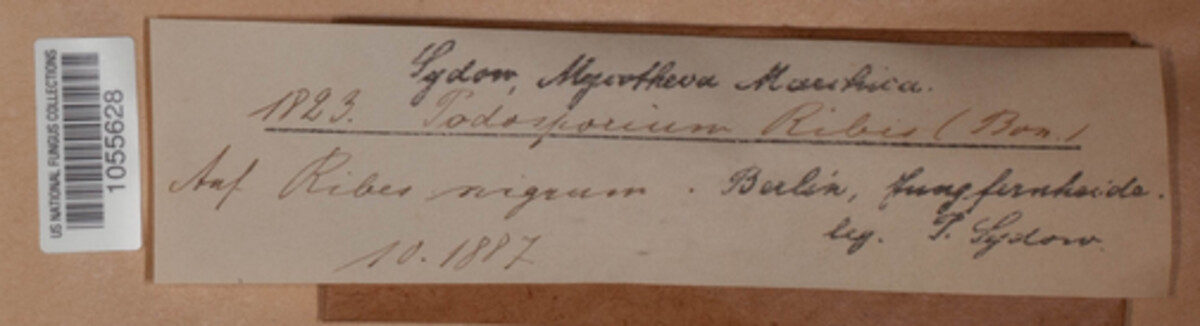 US NATIONAL FUNGUS COLLECTIONS
1055628
Sydow, Mycotheca Marchica.
1823. Podosporium Ribis (Bon.)
Auf Ribes nigrum. Berlin, Jungfernheide.
leg. P. Sydow.
10.1887